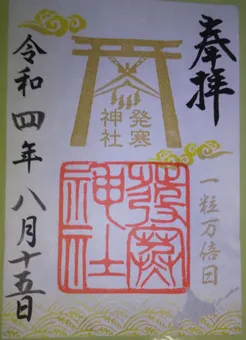 奉拝
発寒
神社
一粒万倍日
發寒
神社
令和四年八月十五日